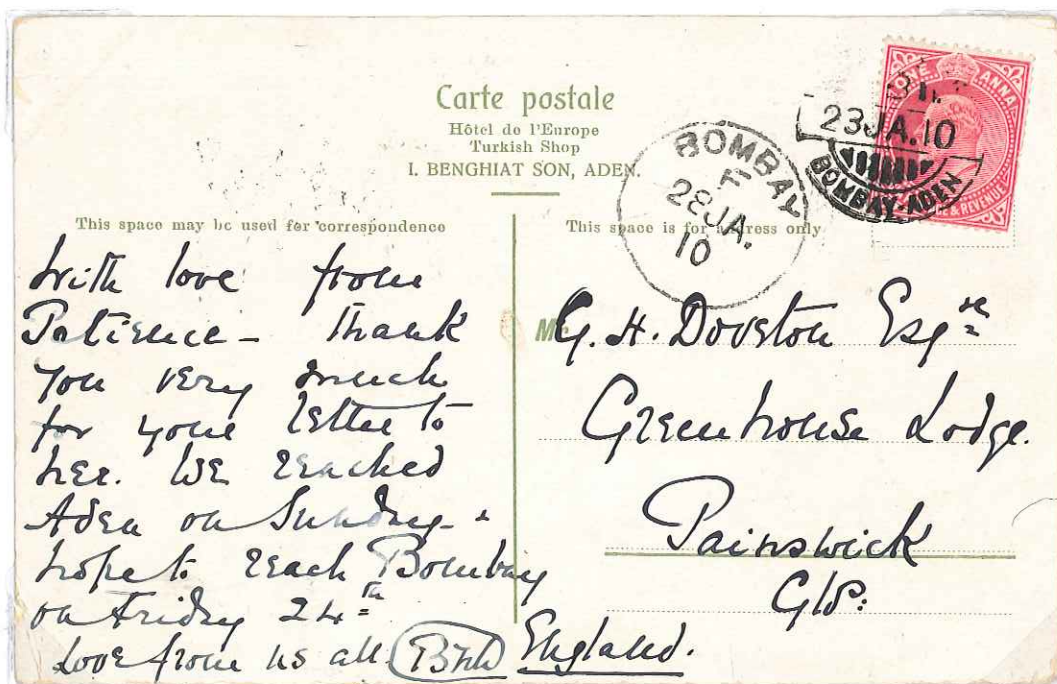 Carte postale
Hôtel de l'Europe
Turkish Shop
I. BENGHIAT SON, ADEN.
This space may be used for correspondence
This space is for address only
ONE ANNA
& REVENUE
23JA.10
BOMBAY-ADEN
BOMBAY
28JA.
10
With love from
Patience - thank
you very much
for your letter to
her. We reached
Aden on Sunday &
hope to reach Bombay
on Friday 24th
Love from us all
G. H. Doveton Esqre
Greenhouse Lodge.
Painswick
Glos:
England.